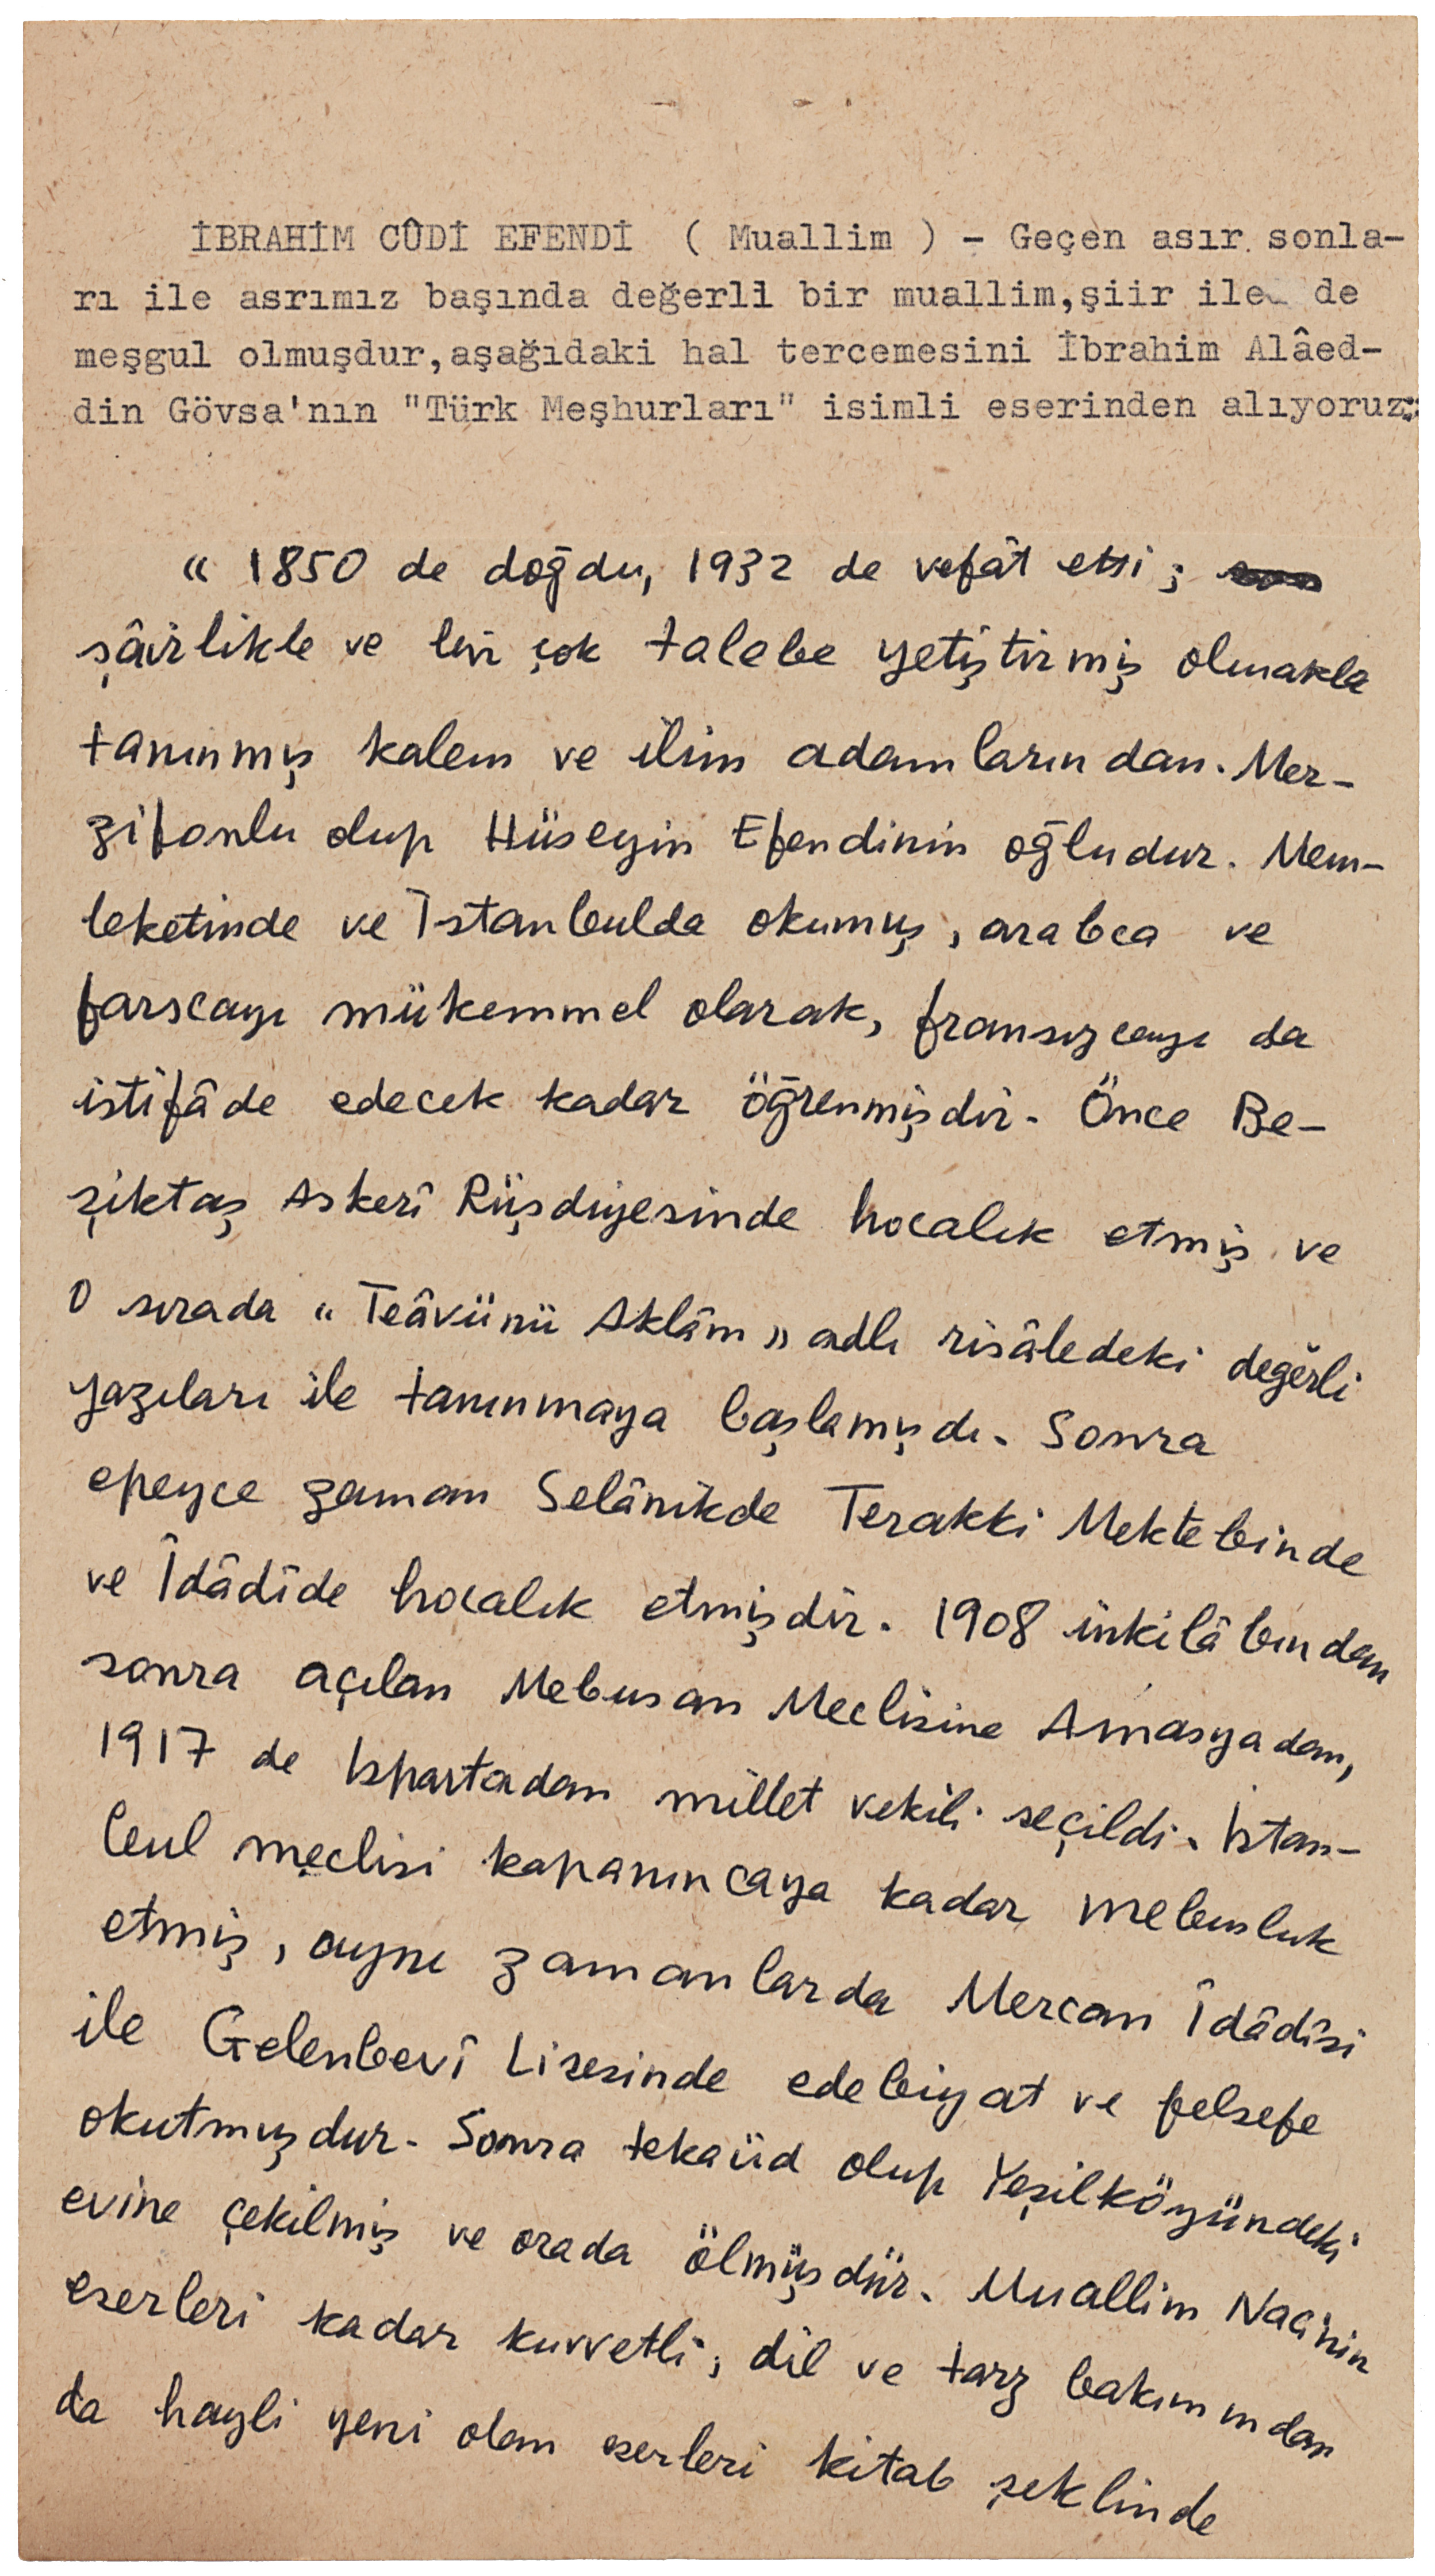 İBRAHİM CÛDİ EFENDİ ( Muallim ) - Geçen asır sonla-
rı ile asrımız başında değerli bir muallim,şiir ile de
meşgul olmuşdur,aşağıdaki hal tercemesini İbrahim Alâed-
din Gövsa'nın "Türk Meşhurları" isimli eserinden alıyoruz:
" 1850 de doğdu, 1932 de vefât etti ;
şâirlikle ve bir çok talebe yetiştirmiş olmakla
tanınmış kalem ve ilim adamlarından. Mer-
zifonlu olup Hüseyin Efendinin oğludur. Mem-
leketinde ve İstanbulda okumuş, arabca ve
farscayı mükemmel olarak, fransızcayı da
istifâde edecek kadar öğrenmişdir. Önce Be-
şiktaş Askerî Rüşdiyesinde hocalık etmiş ve
o sırada "Teâvünü Aklâm" adlı risâledeki değerli
yazıları ile tanınmaya başlamışdı. Sonra
epeyce zaman Selânikde Terakki Mektebinde
ve İdâdîde hocalık etmişdir. 1908 inkilâbından
sonra açılan Mebusan Meclisine Amasyadan,
1917 de Ispartadan millet vekili seçildi. İstan-
bul meclisi kapanıncaya kadar mebusluk
etmiş, aynı zamanlarda Mercan İdâdîsi
ile Gelenbevî Lisesinde edebiyat ve felsefe
okutmuşdur. Sonra tekaüd olup Yeşilköyündeki
evine çekilmiş ve orada ölmüşdür. Muallim Nacinin
eserleri kadar kuvvetli, dil ve tarz bakımından
da hayli yeni olan eserleri kitab şeklinde